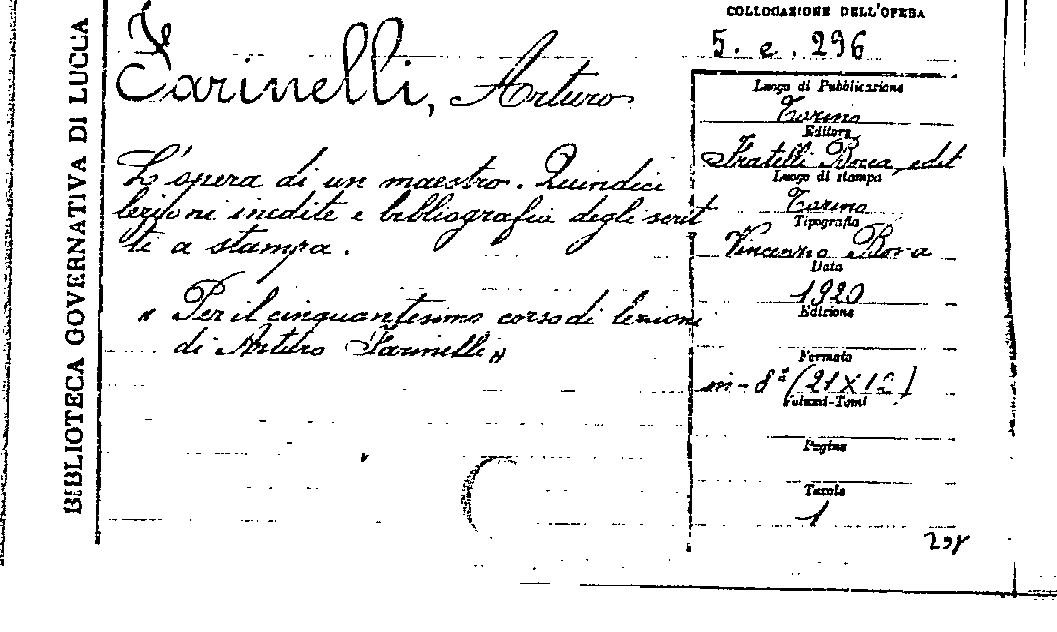 BIBLIOTECA GOVERNATIVA DI LUCCA
Farinelli, Arturo
L'opera di un maestro. Quindici
lezioni inedite e bibliografia degli scrit
ti a stampa.
" Per il cinquantesimo corso di lezioni
di Arturo Farinelli "
COLLOCAZIONE DELL'OPERA
5. e. 296
Luogo di Pubblicazione
Torino
Editore
Fratelli Bocca, edit
Luogo di stampa
Torino
Tipografia
Vincenzo Bona
Data
1920
Edizione
Formato
in-8° (21 X 12)
Volumi-Tomi
Pagine
Tavole
1